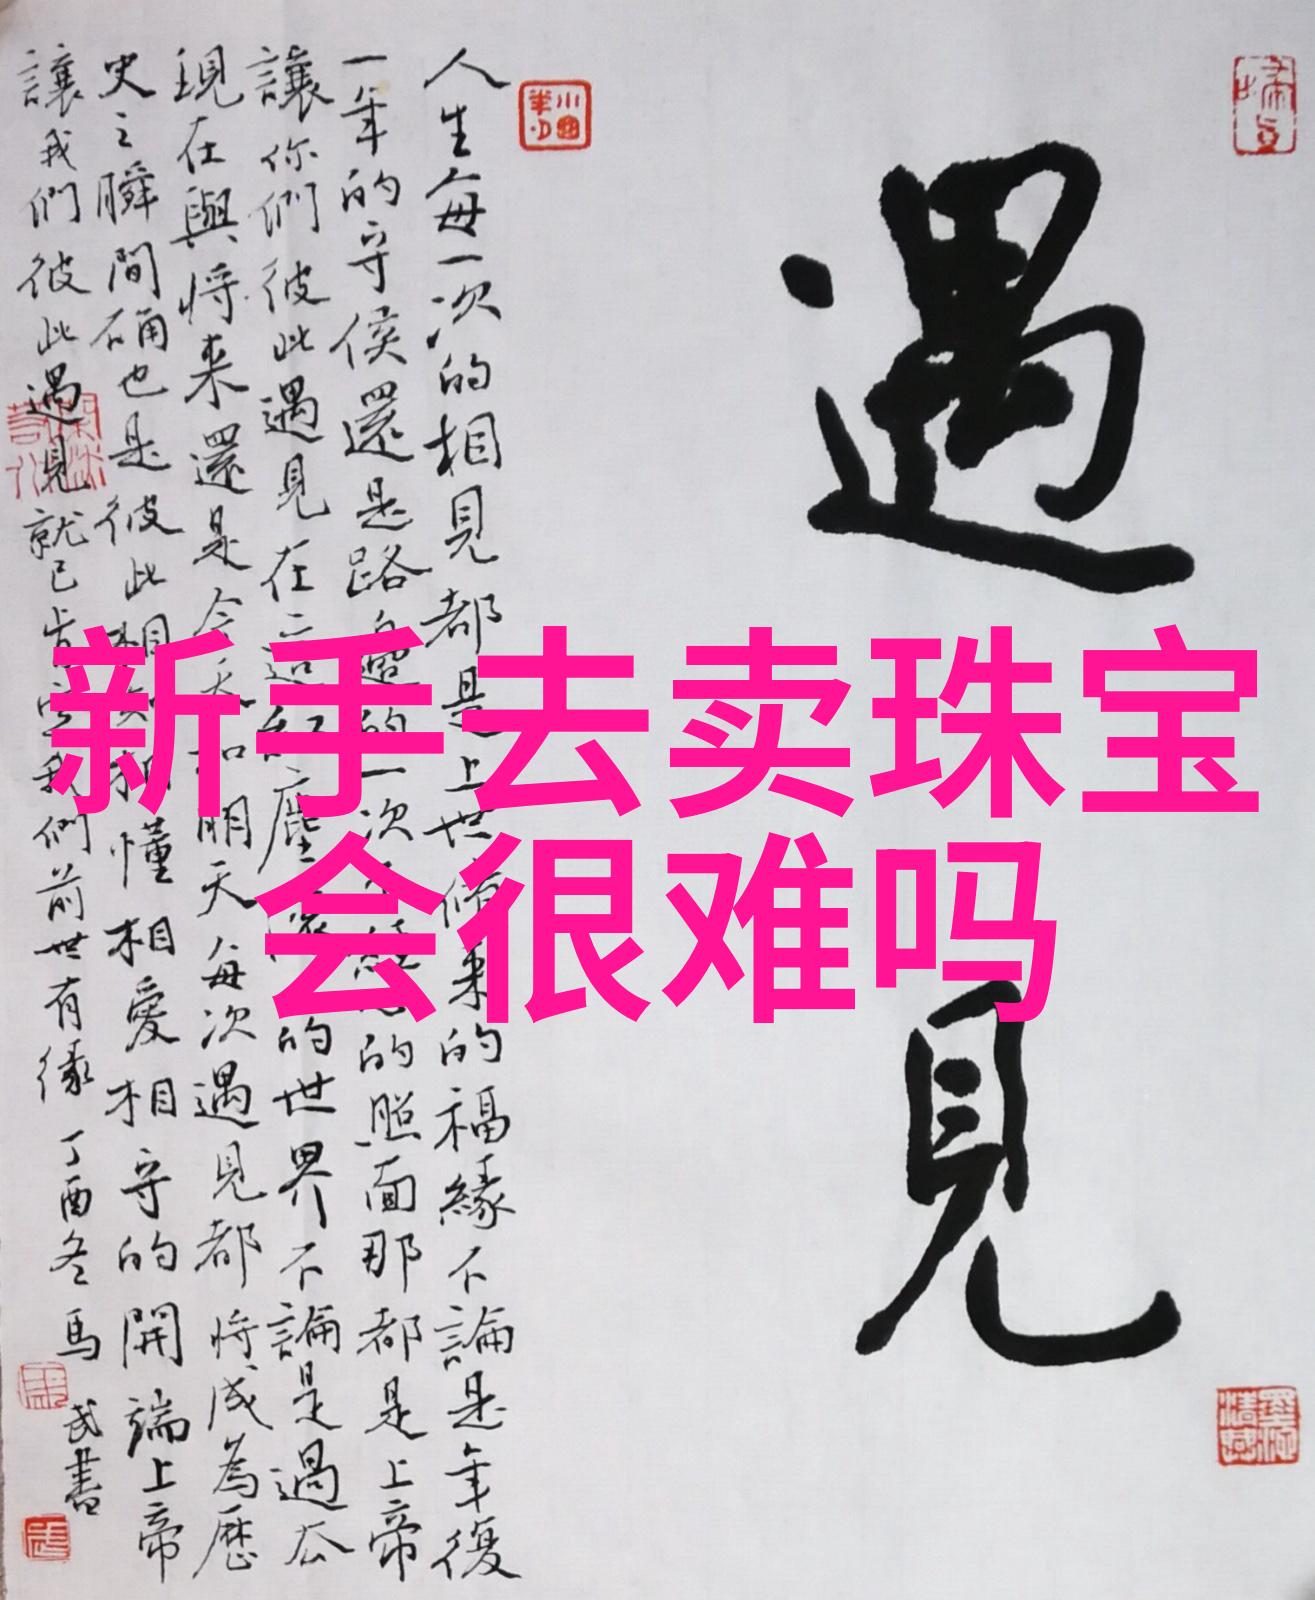 新手去卖珠宝
会很难吗
遇見
人生每一次的相見都是上世修来的福緣不論是年復
一年的守侯還是路邊的一次不經意的照面那都是上帝
讓你們彼此遇見在這紅塵的世界不論是過去
現在與將来還是今天和明天每次遇見都將成為歷
史之瞬間确也是彼此相知相懂相愛相守的開端上帝
讓我們彼此遇見就已肯定我們前世有緣 丁酉冬馬
武書